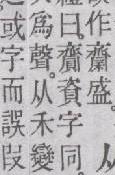 作齍盛。从
經曰。齎資字同
爲聲。从禾變
或字而誤